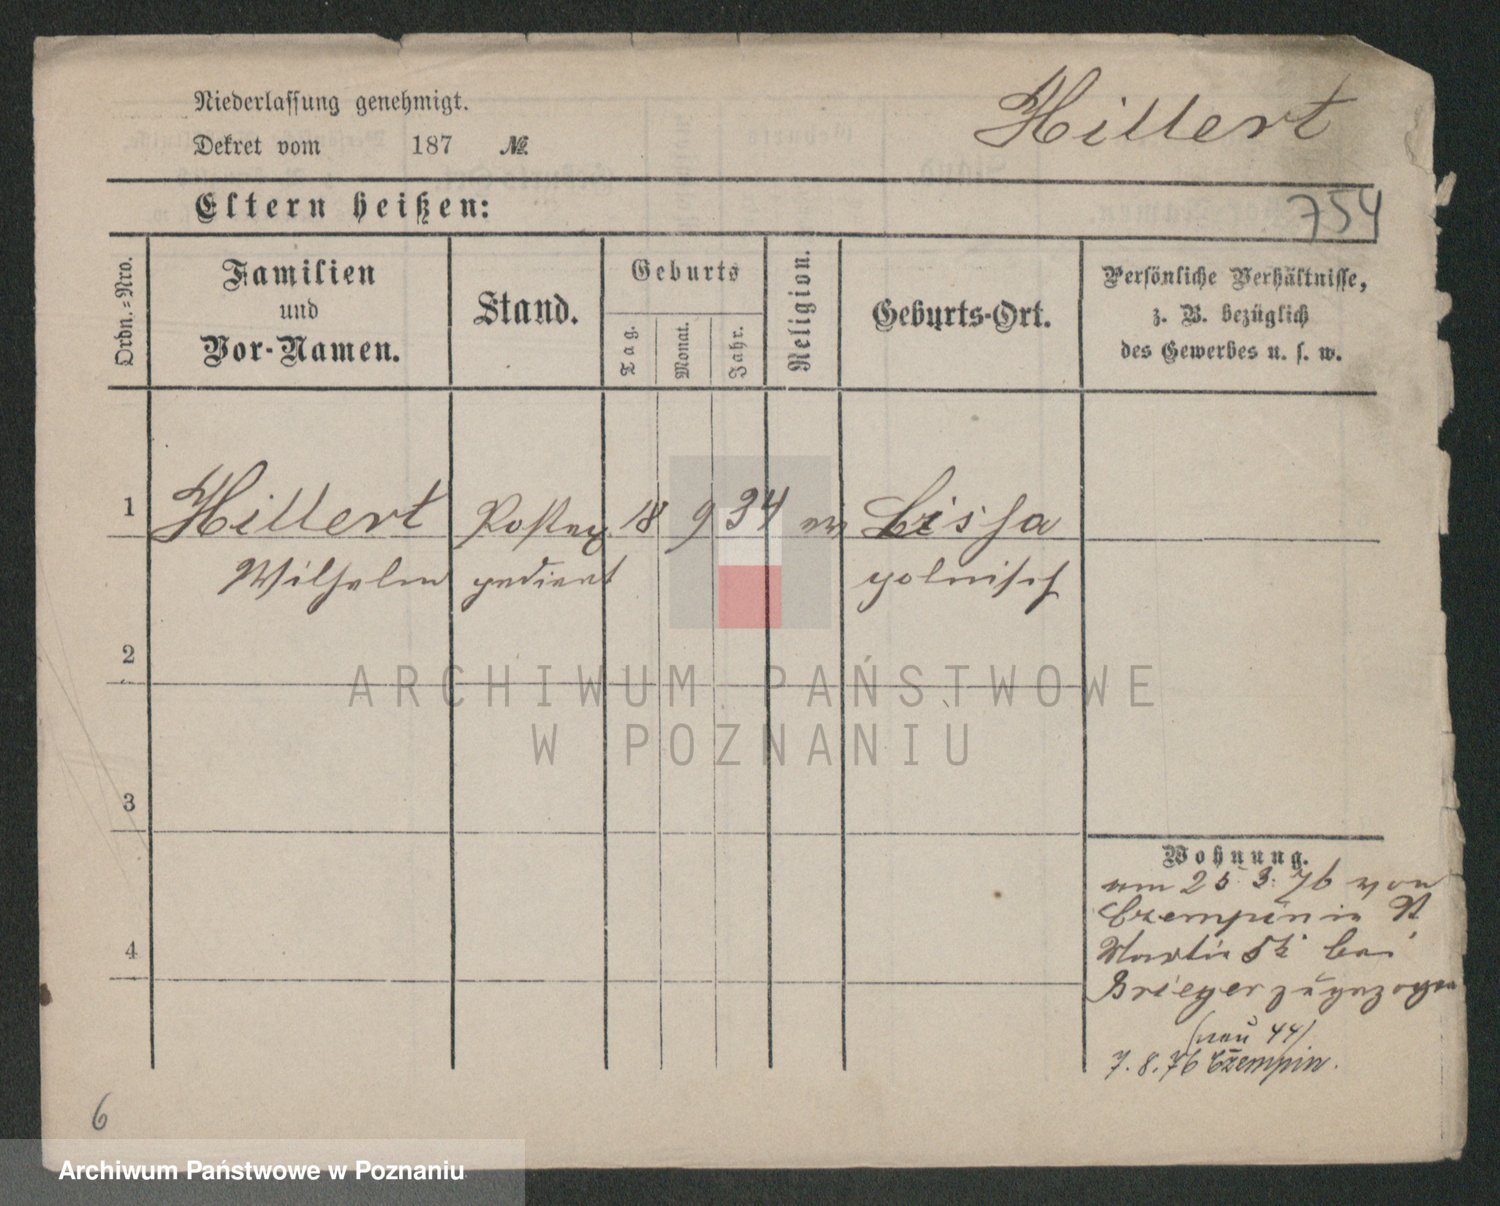 Niederlassung genehmigt.
Hillert
Dekret vom 187 №
Eltern heißen:
754
Ordn.-Nro.
Familien
und
Vor-Namen.
Stand.
Geburts
Tag.
Monat.
Jahr.
Religion.
Geburts-Ort.
Persönliche Verhältnisse,
z. B. bezüglich
des Gewerbes u. s. w.
1 Hillert Postex 18 9 34 ev Lissa
Wilhelm pedient polnisch
2
ARCHIWUM PAŃSTWOWE
W POZNANIU
3
4
Wohnung.
am 25. 3. 76 von
Czempin in St
Martin 52 bei
Grieger zugezogen
(neu 44)
7. 8. 76 Czempin.
6
Archiwum Państwowe w Poznaniu